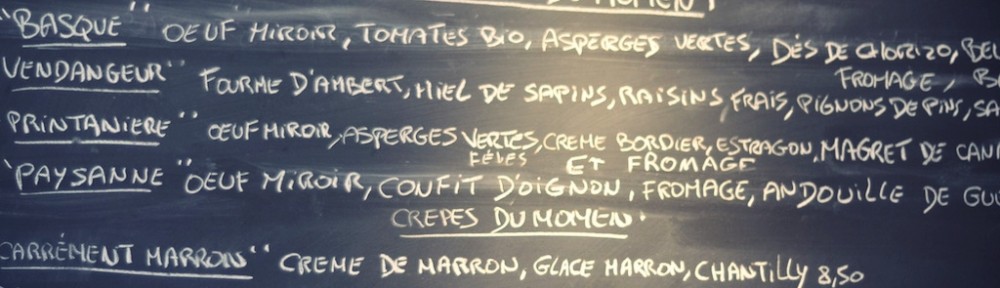 DU MOMENT
"BASQUE" OEUF MIROIR, TOMATES BIO, ASPERGES VERTES, DÉS DE CHORIZO,
FROMAGE,
VENDANGEUR" FOURME D'AMBERT, MIEL DE SAPINS, RAISINS FRAIS, PIGNONS DE PINS,
PRINTANIERE" OEUF MIROIR, ASPERGES VERTES, CREME BORDIER, ESTRAGON, MAGRET DE
FÈVES ET FROMAGE
"PAYSANNE" OEUF MIROIR, CONFIT D'OIGNON, FROMAGE, ANDOUILLE DE
CREPES DU MOMEN.
CARRÉMENT MARRON" CREME DE MARRON, GLACE MARRON, CHANTILLY 8,50